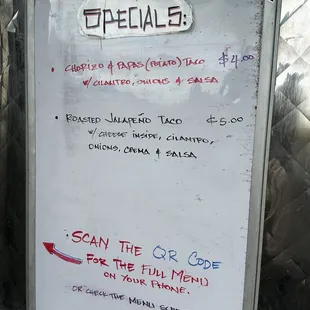 SPECIALS:
• CHORIZO & PAPAS (POTATO) TACO $4.00
W/ CILANTRO, ONIONS & SALSA
• ROASTED JALAPEÑO TACO $5.00
W/ CHEESE INSIDE, CILANTRO,
ONIONS, CREMA & SALSA
• SCAN THE QR CODE
FOR THE FULL MENU
ON YOUR PHONE.
OR CHECK THE MENU